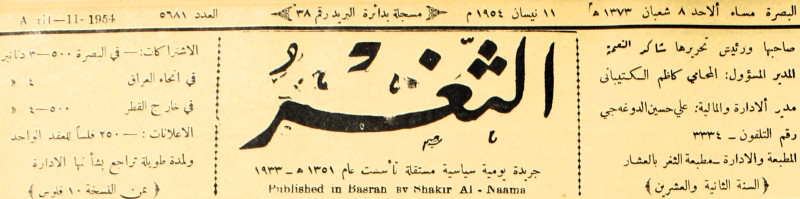 البصرة مساء الاحد ٨ شعبان ١٣٧٣ هـ
١١ نيسان ١٩٥٤ م
مسجلة بدائرة البريد رقم ٣٨
العدد ٥٦٨١
A ril-11-1954
صاحبها ورئيس تحريرها شاكر النعمه
المدير المسؤول: المحامي كاظم الكتيباني
مدير الادارة والمالية: علي حسين الدوغه جي
رقم التلفون ـ ٣٣٣٤
المطبعة والادارة ـ مطبعة الثغر بالعشار
﴿ السنة الثانية والعشرين ﴾
الثَّغْر
جريدة يومية سياسية مستقلة تأسست عام ١٣٥١ هـ ـ ١٩٣٣
Published in Basrah By Shakir Al - Naama
الاشتراكات: ـ في البصرة ٥٠٠ـ٣ دنانير
في انحاء العراق ٤ »
في خارج القطر ٥٠٠ـ٤ »
الاعلانات: ـ ٢٥٠ فلساً للعقد الواحد
ولمدة طويلة تراجع بشأنها الادارة
﴿ ثمن النسخة ١٠ فلوس ﴾